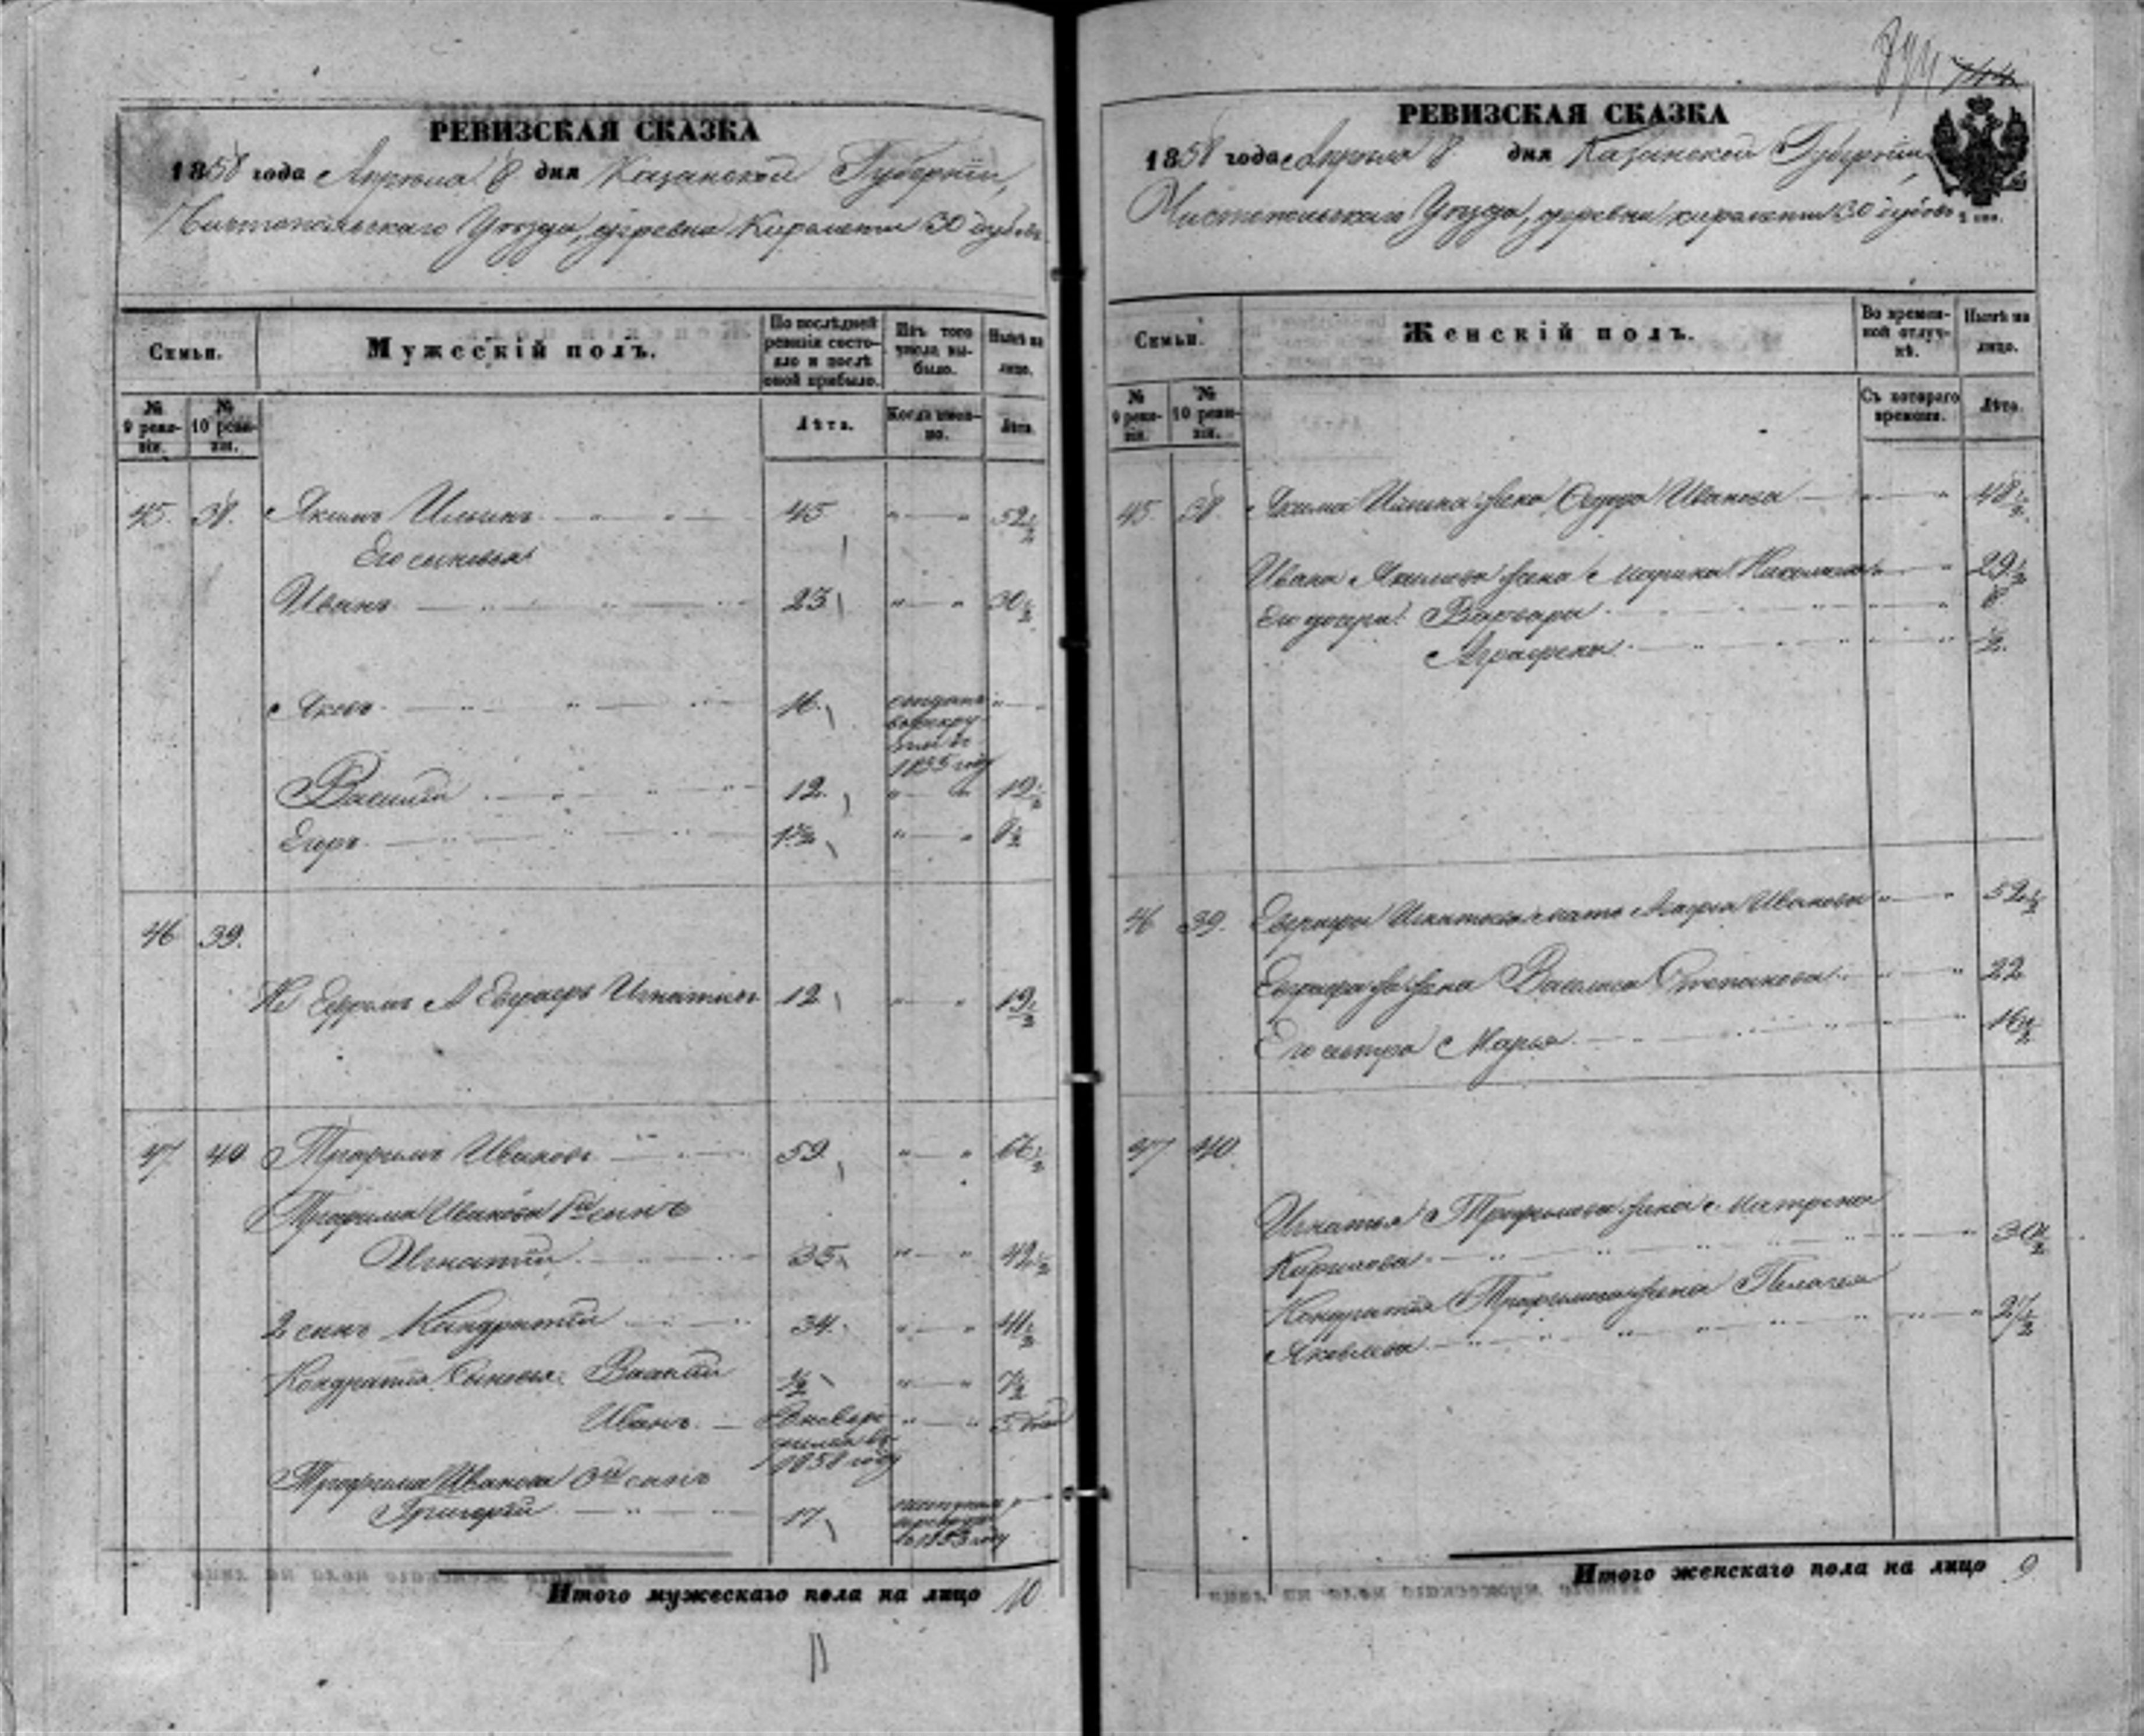 РЕВИЗСКАЯ СКАЗКА
1858 года Апреля 8 дня Казанской Губернии,
Чистопольскаго Уезда, деревни Киремети 30 дубовъ
Семьи.
Мужескій полъ.
По последней ревизіи состояло и после оной прибыло.
Изъ того числа выбыло.
Ныне на лицо.
№ 9 ревизіи.
№ 10 ревизіи.
Лета.
Когда именно.
Лета.
45. 38. Якимъ Ильинъ 45 52½
Его сыновья
Иванъ 23 30½
Яковъ 16 1855 году
Василій 12 19½
Егоръ 1½ 8½
46 39.
Не Ефремъ А Евграфъ Игнатьевъ 12 19½
47. 40 Трофимъ Ивановъ 59 66½
Трофима Иванова 1й сынъ
Игнатій 35 42½
2 сынъ Кандратій 34 41½
Кондратія Сыновья Василій ½ 7½
Иванъ 1858 году
Трофима Иванова 3й сынъ
Григорій 17 1853 году
Итого мужескаго пола на лицо 10
744
РЕВИЗСКАЯ СКАЗКА
1858 года Апреля 8 дня Казанской Губерніи,
Чистопольскаго Уезда, деревни киремети 30 дубовъ
Семьи.
Женскій полъ.
Во временной отлучке.
Ныне на лицо.
№ 9 ревизіи.
№ 10 ревизіи.
Съ котораго времени.
Лета.
45. 38 Якима Ильина жена Иванова 48½
Ивана Якимова жена Марина 29½
Его дочери: Варвара 8
Аграфена ½
46 39. Евграфа Игнатьева мать Иванова 52½
Евграфа жена Василиса Степанова 22
Его сестра Марья 16½
47 40.
Игнатья Трофимова жена Матрена
Кирилова 30½
Кондратія Трофимова жена Пелагея
Яковлева 27½
Итого женскаго пола на лицо 9